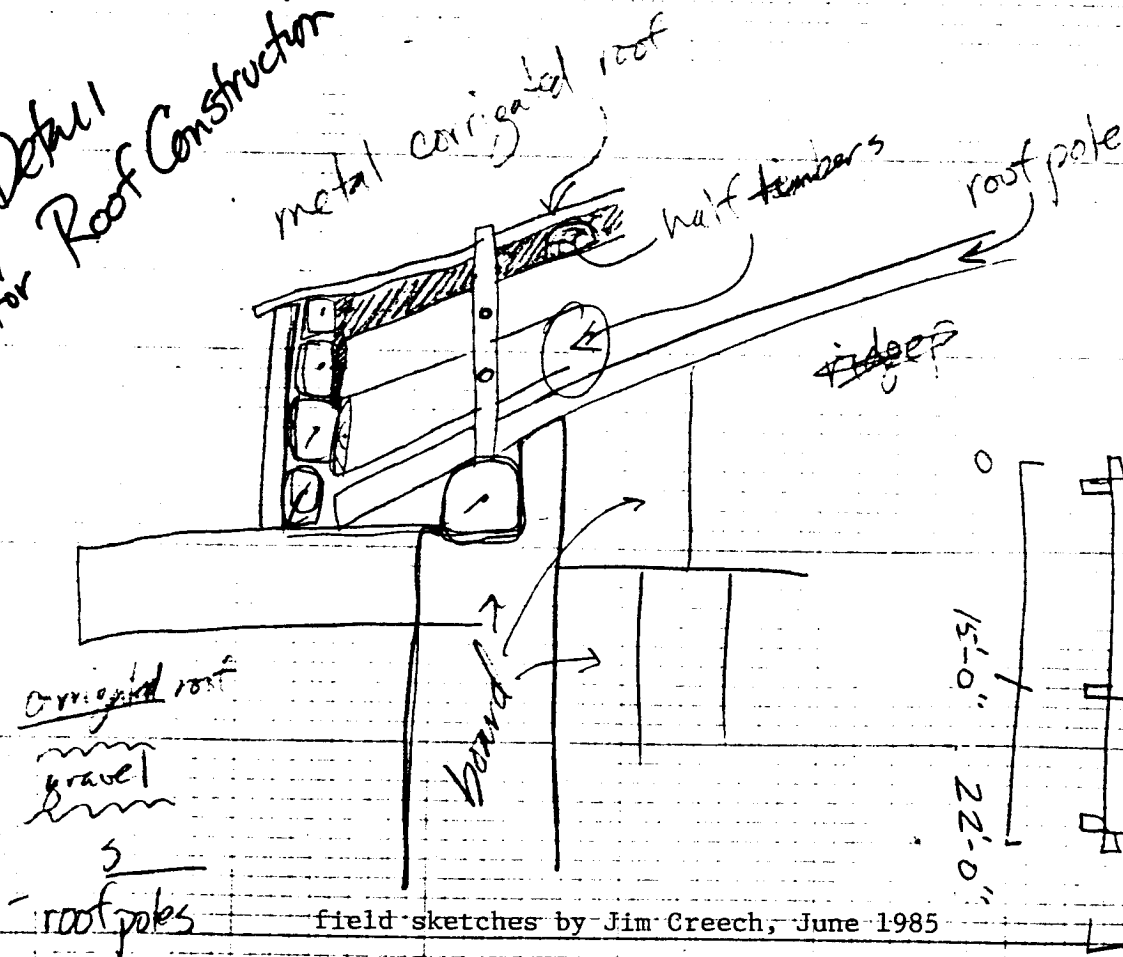 Detail
for Roof Construction
metal corrigated roof
half timbers
roof pole
ridgep
0
15'-0"
22'-0"
board
corrigated roof
gravel
S
roof poles
field sketches by Jim Creech, June 1985